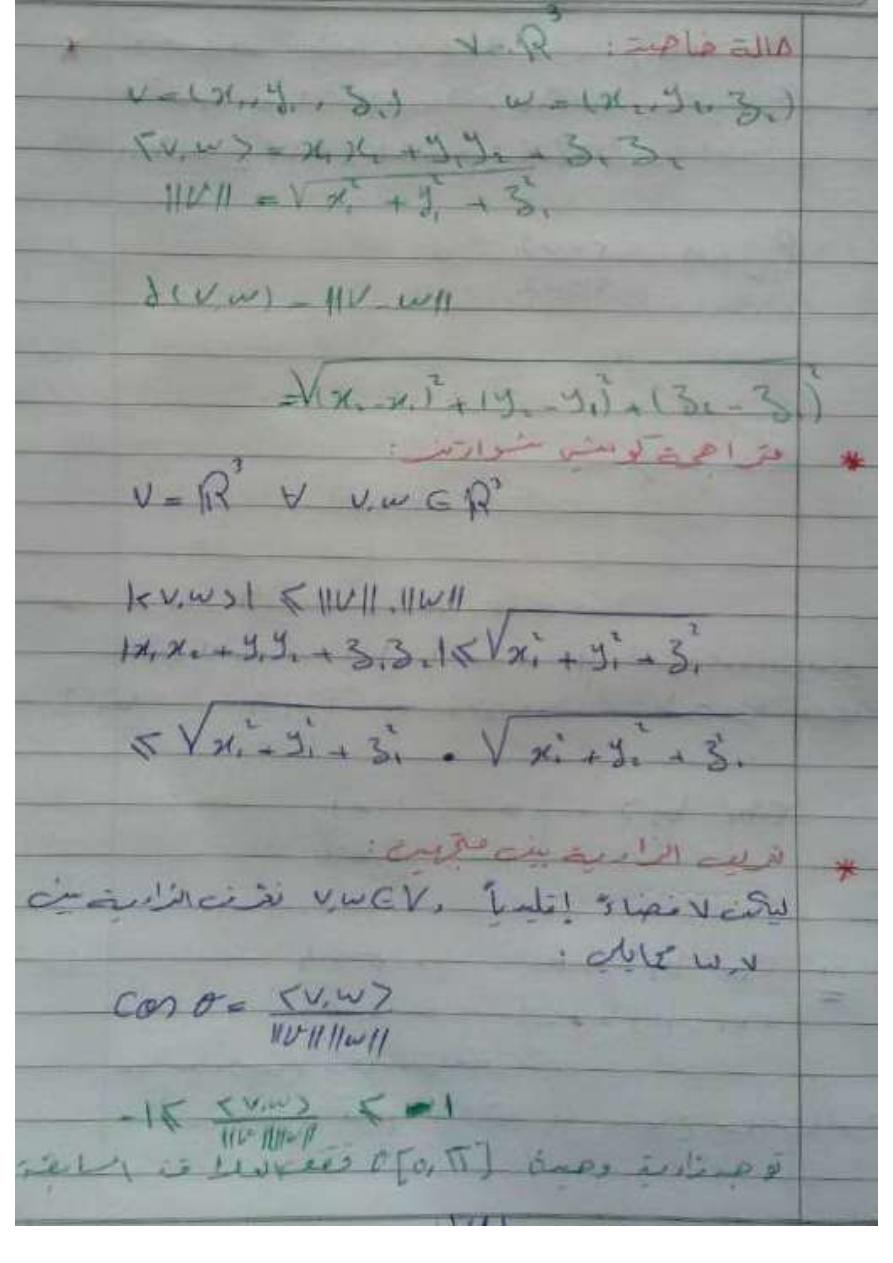 حالة خاصة: V=R³
v=(x₁,y₁,z₁) w=(x₂,y₂,z₂)
<v,w> = x₁x₂ + y₁y₂ + z₁z₂
||v|| = √x₁² + y₁² + z₁²
d(v,w) = ||v-w||
=√(x₂-x₁)²+(y₂-y₁)²+(z₂-z₁)²
* متراجحة كوشي شوارتز:
V=R³ ∀ v,w ∈ R³
|<v,w>| ≤ ||v||.||w||
|x₁x₂+y₁y₂+z₁z₂|≤√x₁²+y₁²+z₁²
≤ √x₁²+y₁²+z₁² . √x₂²+y₂²+z₂²
* تعريف الزاوية بين متجهين:
ليكن V فضاءً إقليدياً، v,w∈V نعرف الزاوية بين
v,w بمايلي:
Cos θ = <v,w> / ||v|| ||w||
-1 ≤ <v,w> / ||v|| ||w|| ≤ 1
توجد زاوية وحيدة [0,π] تحقق العلاقة السابقة